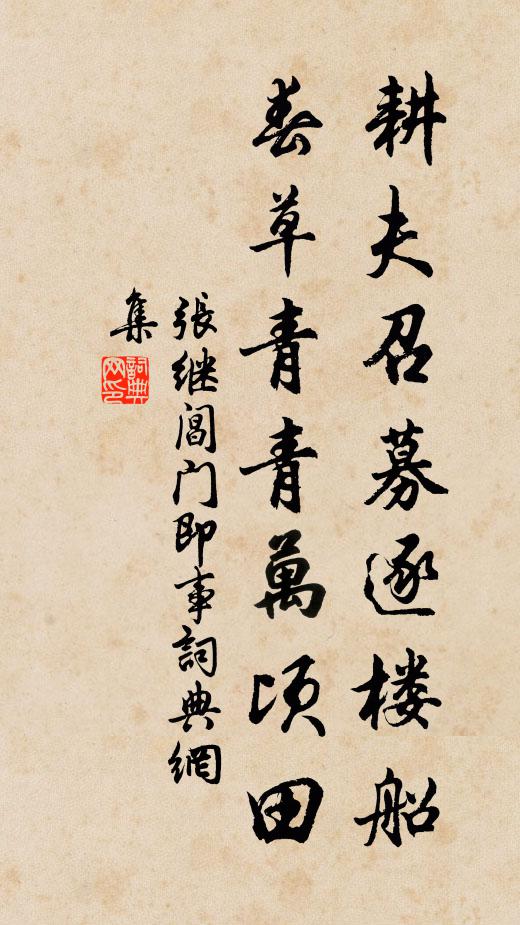 耕夫召募逐楼船
春草青青萬頃田
張继閶门即事詞典網
集
詞典
网印